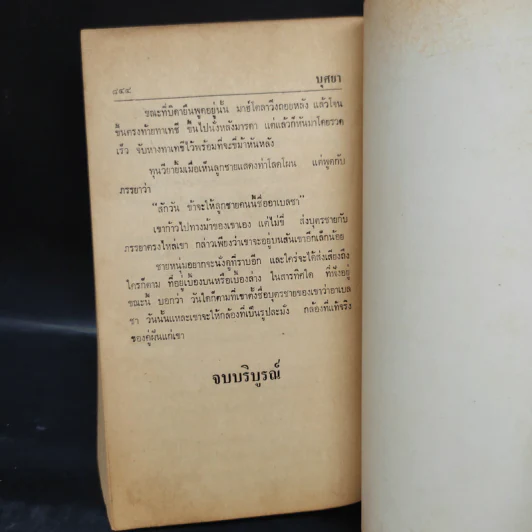 ๘๔๔ บุศยา
ขณะที่บิดายืนพูดอยู่นั้น มาฮ์โตลาวิ่งถอยหลัง แล้วโจน
ขึ้นตรงท้ายทาเทซี ขึ้นไปนั่งหลังมารดา แต่แล้วก็หันมาโดยรวด
เร็ว จับหางทาเทซีไว้พร้อมที่จะขี่ม้าหันหลัง
ทุนวียายิ้มเมื่อเห็นลูกชายแสดงท่าโลดโผน แต่พูดกับ
ภรรยาว่า
“สักวัน ข้าจะให้ลูกชายคนนี้ชื่ออาเบลซา”
เขาก้าวไปทางม้าของเขาเอง แต่ไม่ขี่ ส่งบุตรชายกับ
ภรรยาตรงไหล่เขา กล่าวเพียงว่าเขาจะอยู่บนสันเขาอีกเล็กน้อย
ชายหนุ่มอยากจะนั่งดูที่ราบอีก และใคร่จะได้ส่งเสียงถึง
ใครก็ตาม ที่อยู่เบื้องบนหรือเบื้องล่าง ในสารทิศใด ที่ฟังอยู่
ขณะนี้ บอกว่า วันใดก็ตามที่เขาตั้งชื่อบุตรชายของเขาว่าอาเบล
ซา วันนั้นแหละเขาจะให้กล้องที่เป็นรูปละมั่ง กล้องที่แท้จริง
ของคู่ฝันแก่เขา
จบบริบูรณ์